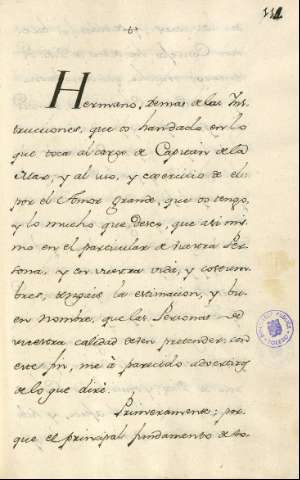 111
Hermano, Demas de las Ins
trucciones, que os han dado en lo
que toca al cargo de Capitan de la
Mar, y al uso, y exercicio de el:
por el Amor grande, que os tengo,
y lo mucho que deseo, que asi mis
mo en el particular de vuestra Per
sona, y en vuestra vida, y costum
bres, tengais la estimacion, y bu
en Nombre, que las Personas de
vuestra calidad deben pretender, con
este fin, me à parecido advertiros
de lo que diré.
Primeramente; por
que el principal fundamento de to